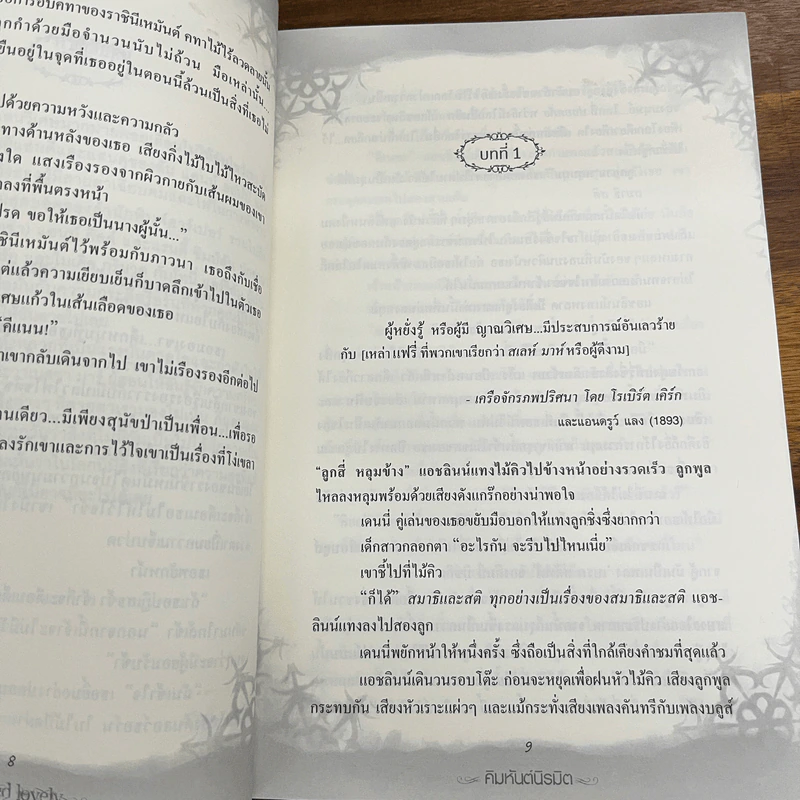 คทาของราชินีเหมันต์ คทาไม้ไร้ลวดลายนั้น
กำด้วยมือจำนวนนับไม่ถ้วน มือเหล่านั้น...
ยืนอยู่ในจุดที่เธออยู่ในตอนนี้ล้วนเป็นสิ่งที่เธอไม่
ปด้วยความหวังและความกลัว
ทางด้านหลังของเธอ เสียงกิ่งไม้ใบไม้ไหวสะบัด
งใด แสงเรืองรองจากผิวกายกับเส้นผมของเขา
ลงที่พื้นตรงหน้า
ปรด ขอให้เธอเป็นนางผู้นั้น..."
ชินีเหมันต์ไว้พร้อมกับภาวนา เธอถึงกับเชื่อ
ต่แล้วความเยียบเย็นก็บาดลึกเข้าไปในตัวเธอ
ศษแก้วในเส้นเลือดของเธอ
คีแนน!"
าเขากลับเดินจากไป เขาไม่เรืองรองอีกต่อไป
านเดียว...มีเพียงสุนัขป่าเป็นเพื่อน...เพื่อรอ
ลงรักเขาและการไว้ใจเขาเป็นเรื่องที่โง่เขลา
8
บทที่ 1
ผู้หยั่งรู้ หรือผู้มี ญาณวิเศษ...มีประสบการณ์อันเลวร้าย
กับ [เหล่าแฟรี่ ที่พวกเขาเรียกว่า สเลห์ มาห์ หรือผู้ดีงาม]
- เครือจักรภพปริศนา โดย โรเบิร์ต เคิร์ก
และแอนดรูว์ แลง (1893)
"ลูกสี่ หลุมข้าง" แอชลินน์แทงไม้คิวไปข้างหน้าอย่างรวดเร็ว ลูกพูล
ไหลลงหลุมพร้อมด้วยเสียงดังแกร๊กอย่างน่าพอใจ
เดนนี่ คู่เล่นของเธอขยับมือบอกให้แทงลูกชิ่งซึ่งยากกว่า
เด็กสาวกลอกตา "อะไรกัน จะรีบไปไหนเนี่ย"
เขาชี้ไปที่ไม้คิว
"ก็ได้" สมาธิและสติ ทุกอย่างเป็นเรื่องของสมาธิและสติ แอช-
ลินน์แทงลงไปสองลูก
เดนนี่พยักหน้าให้หนึ่งครั้ง ซึ่งถือเป็นสิ่งที่ใกล้เคียงคำชมที่สุดแล้ว
แอชลินน์เดินวนรอบโต๊ะ ก่อนจะหยุดเพื่อฝนหัวไม้คิว เสียงลูกพูล
กระทบกัน เสียงหัวเราะแผ่วๆ และแม้กระทั่งเสียงเพลงคันทรีกับเพลงบลูส์
9
คิมหันต์นิรมิต